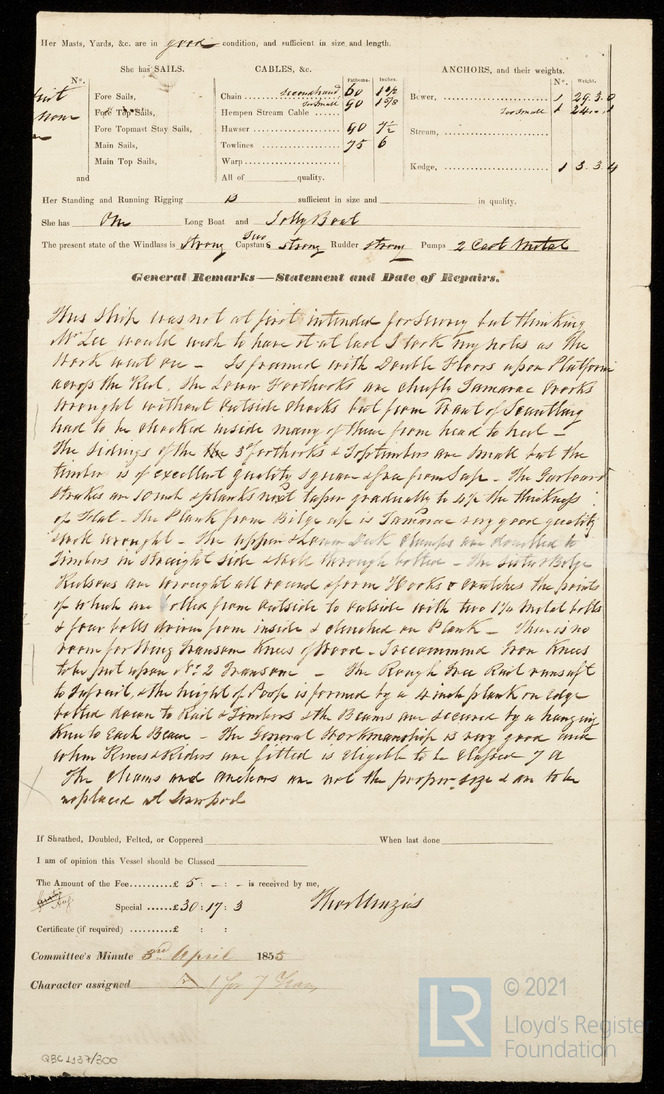 Her Masts, Yards, &c. are in good condition, and sufficient in size and length.
She has SAILS. CABLES, &c. ANCHORS, and their weights.
No. Fathoms. Inches. No. Weight.
Fore Sails, Chain secondhand, 60 Bower, 1 29.3.0
Fore Top Sails, Hempen Stream Cable too small 90 1 5/8 too small 1 24
Fore Topmast Stay Sails, Hawser 90 7½ Stream,
Main Sails, Towlines 75 6
Main Top Sails, Warp Kedge, 1 3.3.4
and All of quality.
Her Standing and Running Rigging is sufficient in size and in quality.
She has One Long Boat and Jolly Boat
The present state of the Windlass is strong Capstans Two strong Rudder strong Pumps 2 Cast Metal
General Remarks—Statement and Date of Repairs.
This Ship was not at first intended for Survey but thinking
Mr Lee would wish to have it at last I took my notes as the
work went on - Is framed with Double Floors upon Platform
across the Keel, the Lower Foothooks are chiefly Tamarac Crooks
wrought without outside chocks but from want of Scantling
had to be chocked inside many of them from head to heel -
The sidings of the 3rd foothooks & Toptimbers are small but the
timber is of excellent quality square & free from sap - The Garboard
strakes are 10 inch & planks next taper gradually to 4½ the thickness
of Flat - The Plank from Bilge up is Tamarac very good quality
well wrought - The upper & Lower Deck Clamps are doubled to
Timbers in straight side & through bolted - The Sister & Bilge
Keelsons are wrought all round & form Hooks & crutches the points
of which are bolted from outside to outside with two 1¼ metal bolts
& four bolts driven from inside & clenched on Plank - There is no
room for Wing Transom Knees of Wood - I recommend Iron Knees
to be put upon No 2 Transom - The Rough Tree Rail runs aft
to Tafrail, & the height of Poop is formed by a 4 inch plank on edge
bolted down to Rail & Timbers & the Beams are secured by a hanging
Knee to Each Beam - The General Workmanship is very good and
when Knees & Riders are fitted is eligible to be classed 7 A
The Chains and Anchors are not the proper size & are to be
replaced at Liverpool
If Sheathed, Doubled, Felted, or Coppered When last done
I am of opinion this Vessel should be Classed
The Amount of the Fee..........£ 5 : - : - is received by me,
Special ......£ 30 : 17 : 3 Thos Menzies
Certificate (if required) ........£ : :
Committee's Minute 3rd April 1855
Character assigned A 1 for 7 Years
QBC1137/300
LR
© 2021
Lloyd's Register
Foundation